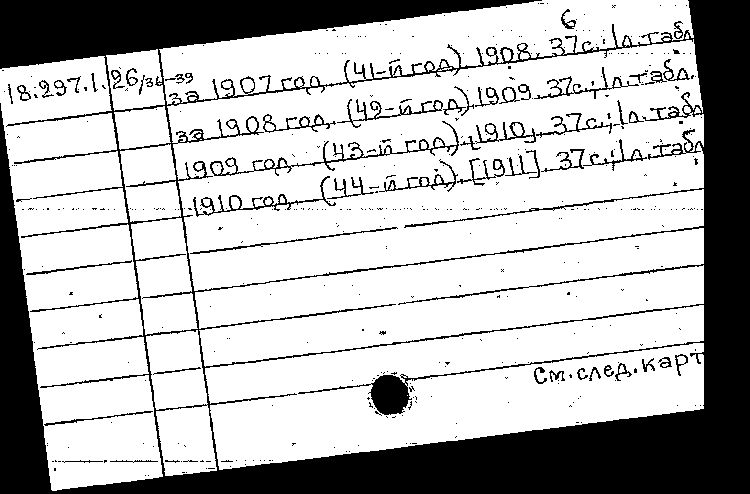 6
18.297.1.26/36-39 за 1907 год. (41-й год). 1908. 37с.; 1л.табл
за 1908 год. (42-й год). 1909. 37с.; 1л.табл.
1909 год. (43-й год). [1910]. 37с.; 1л.табл
1910 год. (44-й год). [1911]. 37с.; 1л.табл
См. след. карт